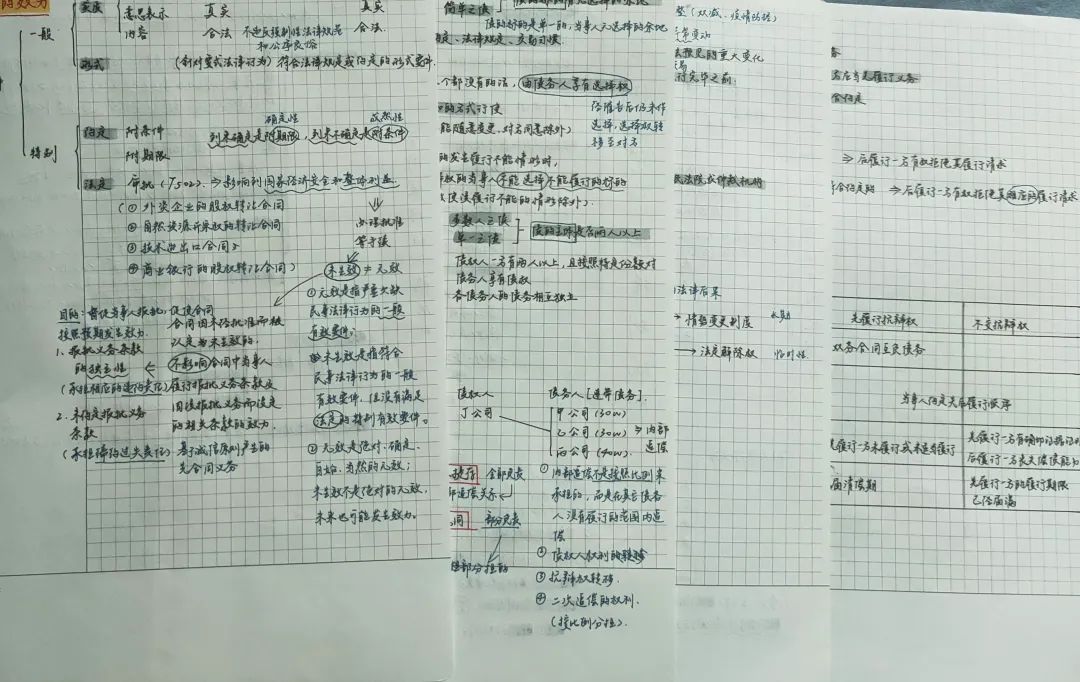 的效力
一般
实质
意思表示 真实 真实
内容 合法 不违反强制性法律规定 合法
和公序良俗
形式 (针对要式法律行为) 符合法律规定或约定的形式要件
确定性 或然性
特别
约定 附条件 到来确定是附期限，到来不确定是附条件
附期限
法定 审批 (J502) ⇒ 影响到国家经济安全和整体利益
(① 外资企业的股权转让合同
② 自然资源开采权的转让合同
③ 技术进出口合同
④ 商业银行的股权转让合同)
办理批准
等手续
未生效 ≠ 无效
① 无效是指严重欠缺
民事法律行为的一般
有效要件；
未生效是指符合
民事法律行为的一般
有效要件，但没有满足
法定的特别有效要件。
② 无效是绝对、确定、
自始、当然的无效；
未生效不是绝对的无效，
未来也可能发生效力。
目的：督促当事人报批，促使合同
按照预期发生效力
合同因未经批准而被
认定为未生效的，
1. 报批义务条款
的独立性
不影响合同中当事人
(承担相应的违约责任)
履行报批义务条款及
因该报批义务而设定
的相关条款的效力。
2. 未约定报批义务
条款
(承担缔约过失责任)
基于诚信原则产生的
先合同义务
简单之债
债的标的是单一的，当事人无选择的余地
定、法律规定、交易习惯
个都没有的话，由债务人享有选择权
的方式行使
能随意变更，对方同意除外)
选择，选择权转
移至对方
的发生履行不能情形时，
权的当事人不能选择不能履行的标的
使该履行不能的情形除外)．
多数人之债
单一之债
债的主体是否两人以上
债权人一方有两人以上，且按照特定份额对
债务人享有债权
各债务人的债务相互独立
债权人 债务人 [连带债务].
丁公司 甲公司 (30w)
乙公司 (30w) ⇒ 内部
追偿
丙公司 (40w)．
全部免责
部追偿关系
部分免责
部分担的
① 内部追偿不是按照比例来
承担的，而是在其它债务
人没有履行的范围内追
偿
② 债权人权利的转移
③ 抗辩权转移．
④ 二次追偿的权利．
(按比例分担)．
整 (双减、疫情防控)
正常变动
的重大变化
完毕之前
民法院或仲裁机构
法律后果
→ 情势变更制度 长期
→ 法定解除权 临时性
后履行义务
合约定
⇒ 后履行一方有权拒绝其履行请求
符合约定的 ⇒ 后履行一方有权拒绝其相应的履行请求
先履行抗辩权 不安抗辩权
双务合同互负债务
当事人约定先后履行顺序
先履行一方未履行或未适当履行
先履行一方有确切的证据证明
后履行一方丧失债务能力
届清偿期
先履行一方的履行期限
已经届满